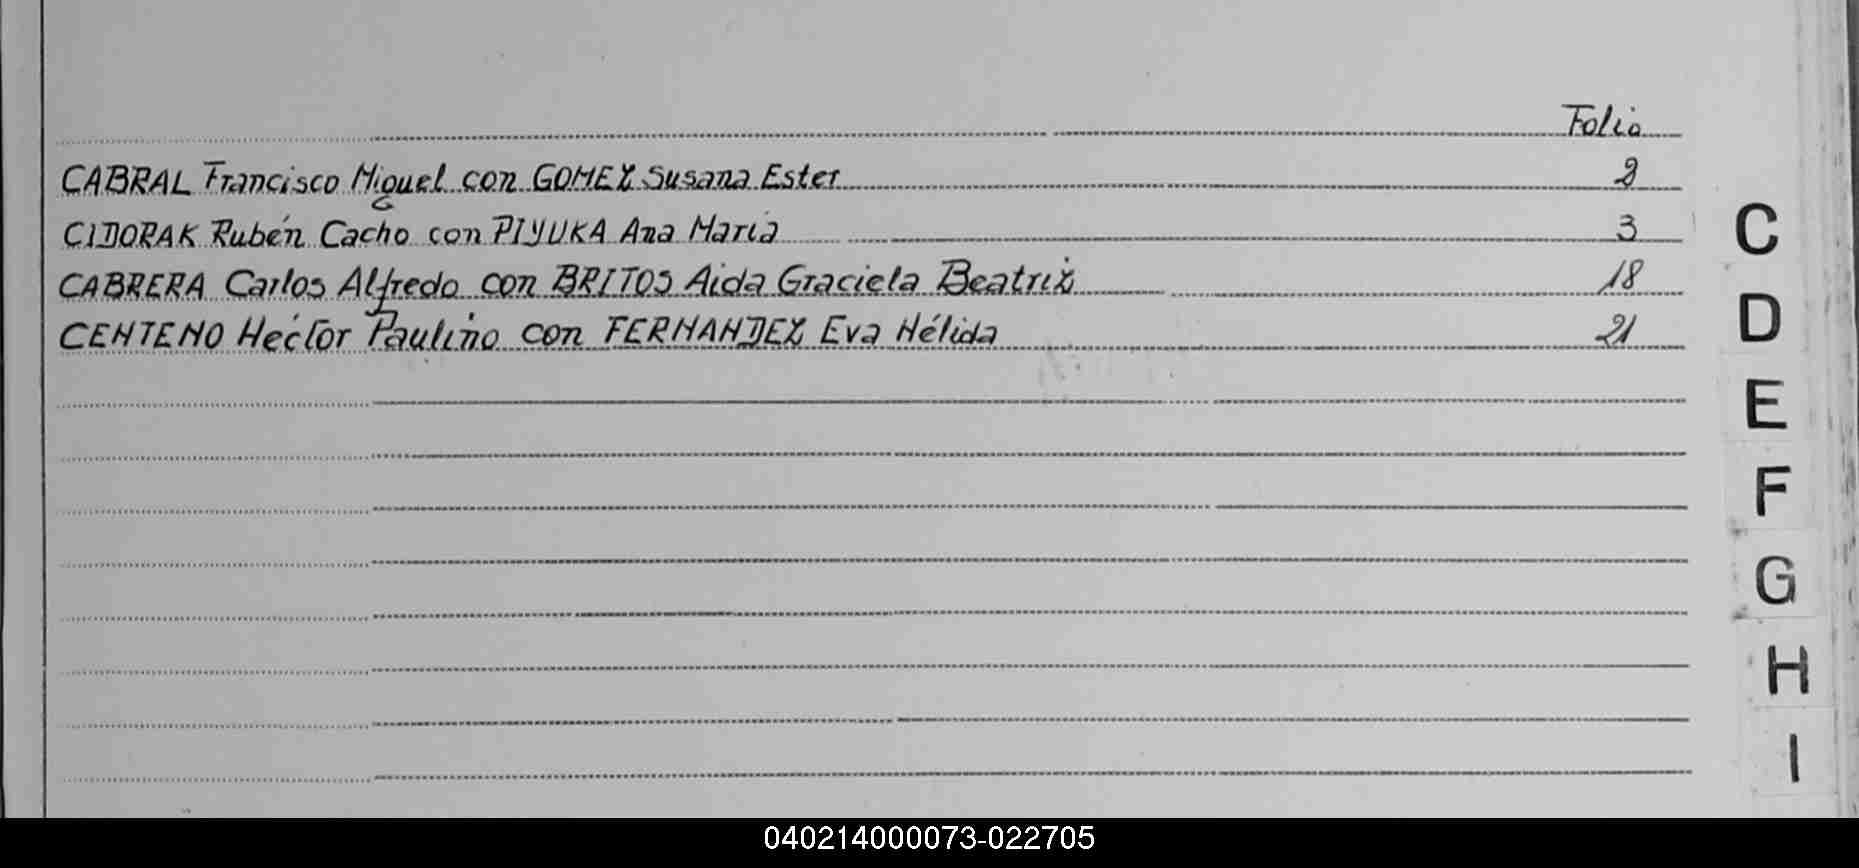 Folio
CABRAL Francisco Miguel con GOMEZ Susana Ester 2
CIDORAK Rubén Cacho con PIYUKA Ana María 3
CABRERA Carlos Alfredo con BRITOS Aida Graciela Beatriz 18
CENTENO Héctor Paulino con FERNANDEZ Eva Nélida 21
C
D
E
F
G
H
I
040214000073-022705